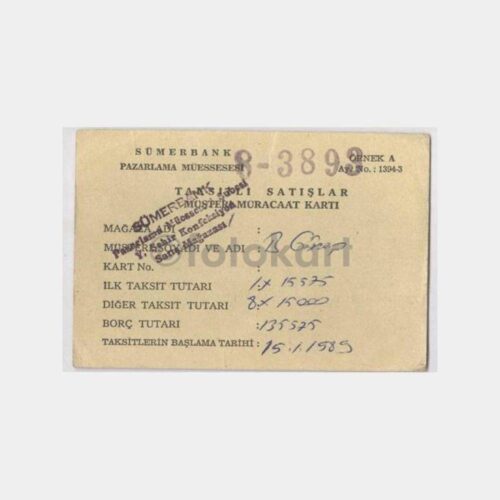 SÜMERBANK
PAZARLAMA MÜESSESESİ
8-3893
ÖRNEK A
Ayt No.: 1394-3
TAKSİTLİ SATIŞLAR
MÜŞTERİ MURACAAT KARTI
SÜMERBANK
Pazarlama Müessesesi
Y. Şehir Konfeksiyon
Satış Mağazası
MAĞAZA ADI
MÜŞTERİ SOYADI VE ADI :
©fotokart
KART No.
İLK TAKSİT TUTARI 1 x 15575
DİĞER TAKSİT TUTARI 8 x 15000
BORÇ TUTARI : 135575
TAKSİTLERİN BAŞLAMA TARİHİ : 15.1.1989